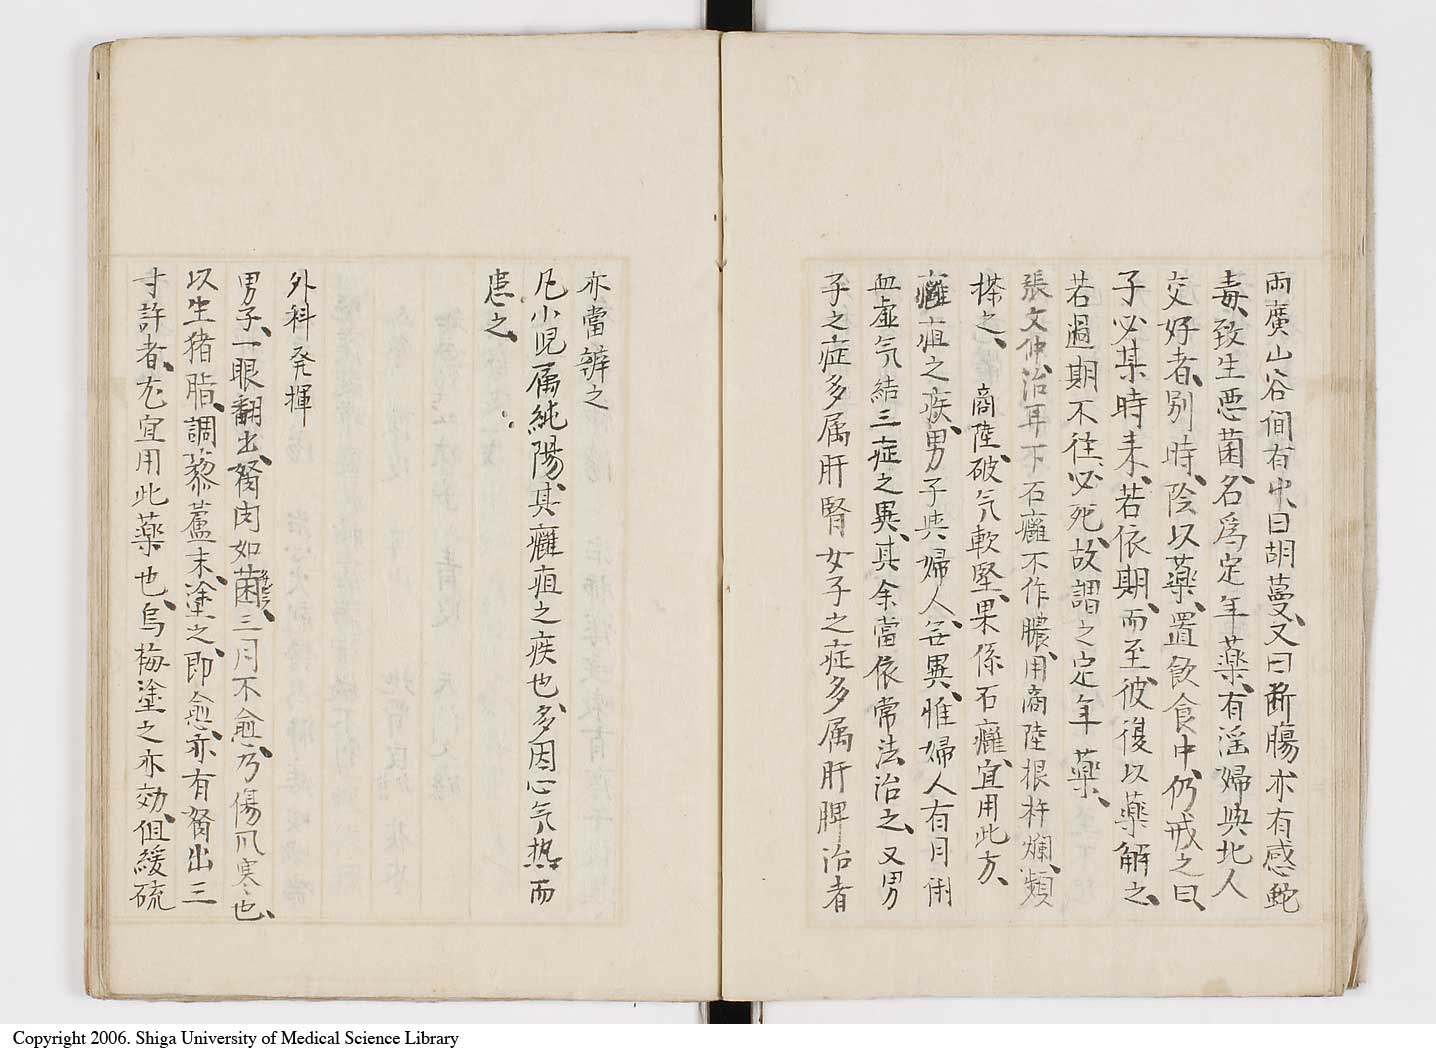 兩廣山谷間有屮曰胡蔓、又曰断膓亦有感蛇
毒、致生悪菌、名爲定年藥、有淫婦與北人
交好者、別時、陰以藥、置飲食中、仍戒之曰、
子必某時来、若依期、而至、彼復以藥解之、
若過期不往、必死、故謂之定年藥、
張文仲、治耳下石癰不作膿、用商陸根杵爛、頻
搽之、商陸、破气軟堅、果係石癰、宜用此方、
癰疽之疾、男子與婦人、無異、惟婦人有月俐
血虚气結三症之異、其余當依常法治之、又男
子之症多属肝腎女子之症多属肝脾治者
亦當辨之
凡小児属純陽、其癰疽之疾也、多因心气热而
患之、
外科発揮
男子、一眼翻出、努肉如菌、三月不愈、乃傷风寒也、
以生猪脂、調藜蘆末、塗之、即愈、亦有努出三
寸許者、尤宜用此藥也、烏梅塗之亦効、但緩硫
Copyright 2006. Shiga University of Medical Science Library